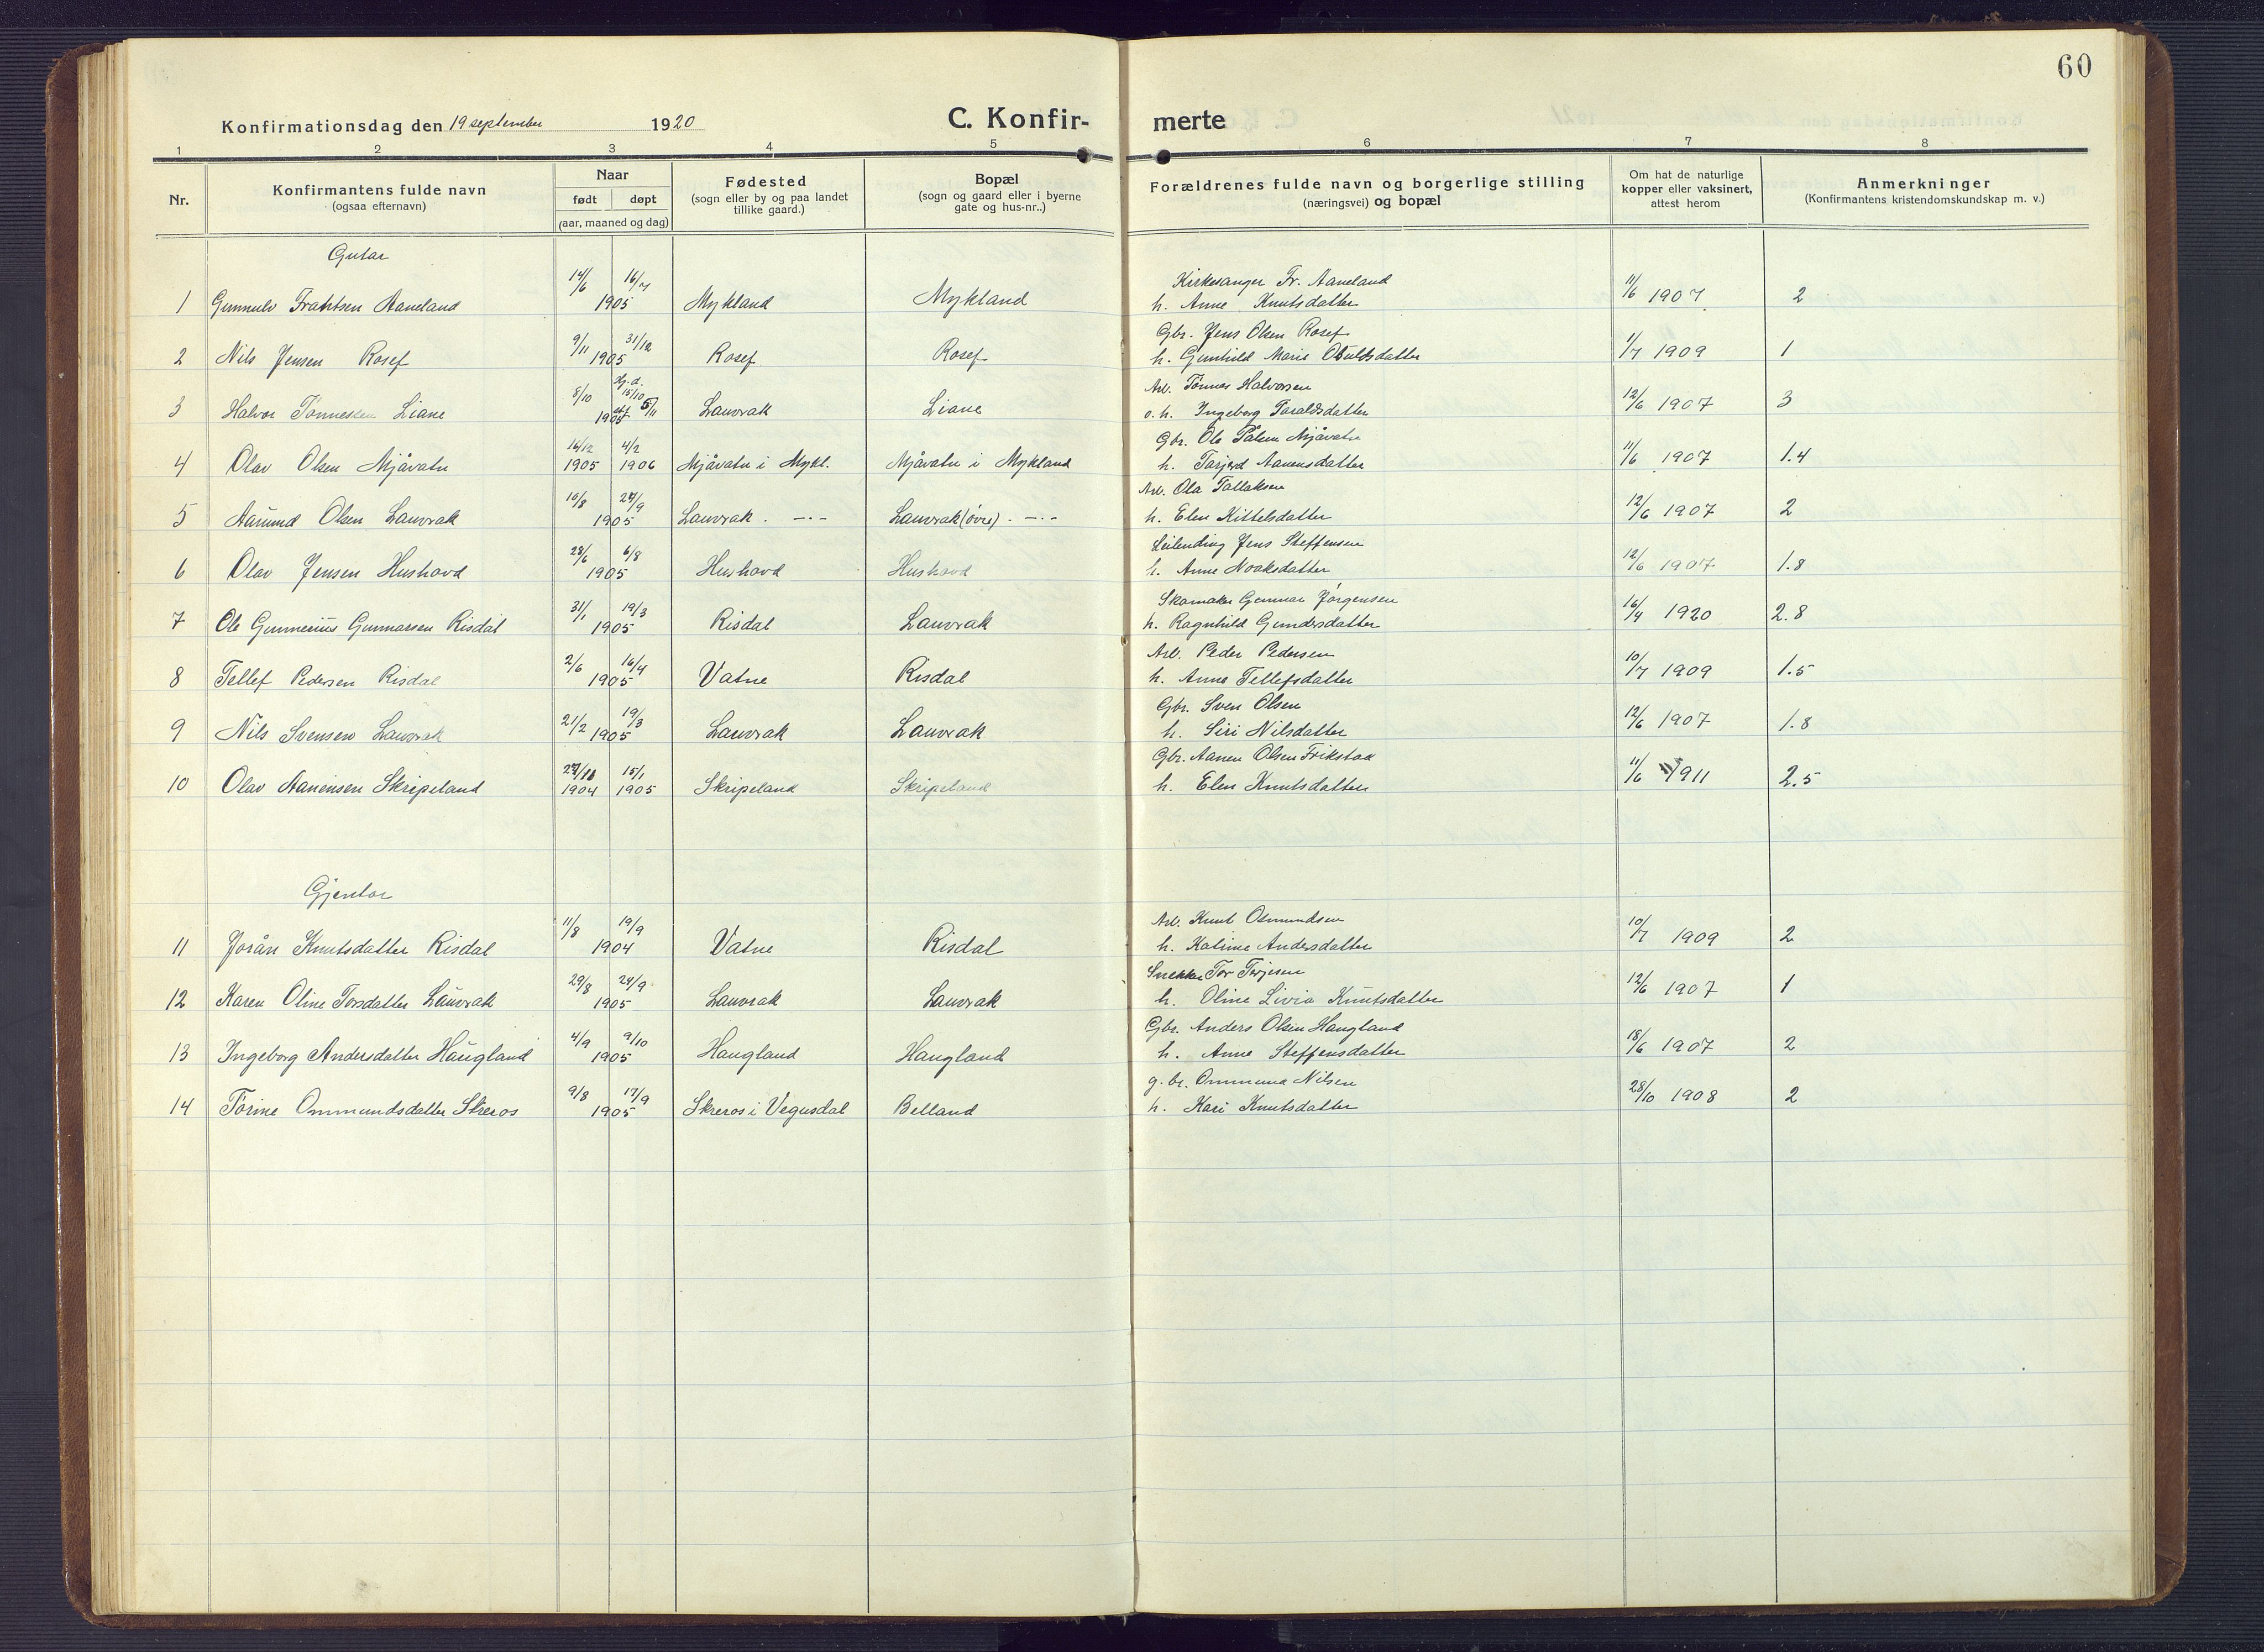 60
Konfirmationsdag den 19 september 1920
C. Konfir-
merte
1 2 3 4 5 6 7 8
Nr.
Konfirmantens fulde navn
(ogsaa efternavn)
Naar
født døpt
(aar, maaned og dag)
Fødested
(sogn eller by og paa landet
tillike gaard.)
Bopæl
(sogn og gaard eller i byerne
gate og hus-nr..)
Forældrenes fulde navn og borgerlige stilling
(næringsvei) og bopæl
Om hat de naturlige
kopper eller vaksinert,
attest herom
Anmerkninger
(Konfirmantens kristendomskundskap m. v.)
Gutar
14/6 16/7 Kirkesanger Fr. Aaneland
1 Gunnulv Frantsen Aaneland 1905 Mykland Mykland h. Anne Knutsdatter 11/6 1907 2
9/11 31/12 Gbr. Jens Olsen Rosef
2 Nils Jensen Rosef 1905 Rosef Rosef h. Gunhild Marie Osuldsdatter 1/7 1909 1
8/10 Hj. d. 15/10 Arb. Tønnes Halvorsen
3 Halvor Tønnessen Liane 1905 5/11 Lauvrak Liane o. h. Ingeborg Taraldsdatter 12/6 1907 3
16/12 4/2 Gbr. Ole Pålsen Mjåvatn
4 Olav Olsen Mjåvatn 1905 1906 Mjåvatn i Mykl. Mjåvatn i Mykland h. Tarjerd Aanensdatter 11/6 1907 1.4
10/8 24/9 Arb. Ola Tallaksen
5 Aamund Olsen Lauvrak 1905 Lauvrak. -.- Lauvrak (øvre). -.- h. Elen Kittelsdatter 12/6 1907 2
28/6 6/8 Leilending Jens Steffensen
6 Olav Jensen Hushovd 1905 Hushovd Hushovd h. Anne Noaksdatter 12/6 1907 1.8
31/1 19/3 Skomaker Gunnar Jørgensen
7 Ole Gunnerius Gunnarsen Risdal 1905 Risdal Lauvrak h. Ragnhild Gundersdatter 16/4 1920 2.8
2/6 16/4 Arb. Peder Pedersen
8 Tellef Pedersen Risdal 1905 Vatne Risdal h. Anne Tellefsdatter 10/7 1909 1.5
21/2 19/3 Gbr. Sven Olsen
9 Nils Svensen Lauvrak 1905 Lauvrak Lauvrak h. Siri Nilsdatter 12/6 1907 1.8
15/1 Gbr. Aanen Olsen Frikstad
10 Olav Aanensen Skripeland 1904 1905 Skripeland Skripeland h. Elen Knutsdatter 11/6 1911 2.5
Gjentor
11/8 19/9 Arb. Knut Osmundsen
11 Jorån Knutsdatter Risdal 1904 Vatne Risdal h. Katrine Andersdatter 10/7 1909 2
29/8 24/9 Snekker Tor Terjesen
12 Karen Oline Torsdatter Lauvrak 1905 Lauvrak Lauvrak h. Oline Livia Knutsdatter 12/6 1907 1
4/9 9/10 Gbr. Anders Olsen Haugland
13 Ingeborg Andersdatter Haugland 1905 Haugland Haugland h. Anne Steffensdatter 18/6 1907 2
9/8 17/9 g. br. Ommund Nilsen
14 Torine Ommundsdatter Skreros 1905 Skreros i Vegusdal Belland h. Kari Knutsdatter 28/10 1908 2